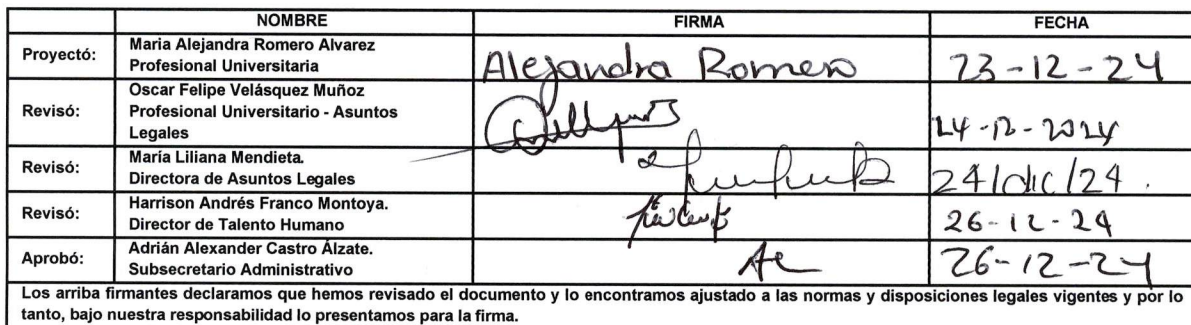 NOMBRE FIRMA FECHA
Proyectó: Maria Alejandra Romero Alvarez
Profesional Universitaria
Alejandra Romero 23-12-24
Revisó: Oscar Felipe Velásquez Muñoz
Profesional Universitario - Asuntos
Legales
24-12-2024
Revisó: María Liliana Mendieta.
Directora de Asuntos Legales
24/dic/24.
Revisó: Harrison Andrés Franco Montoya.
Director de Talento Humano
26-12-24
Aprobó: Adrián Alexander Castro Álzate.
Subsecretario Administrativo
26-12-24
Los arriba firmantes declaramos que hemos revisado el documento y lo encontramos ajustado a las normas y disposiciones legales vigentes y por lo
tanto, bajo nuestra responsabilidad lo presentamos para la firma.